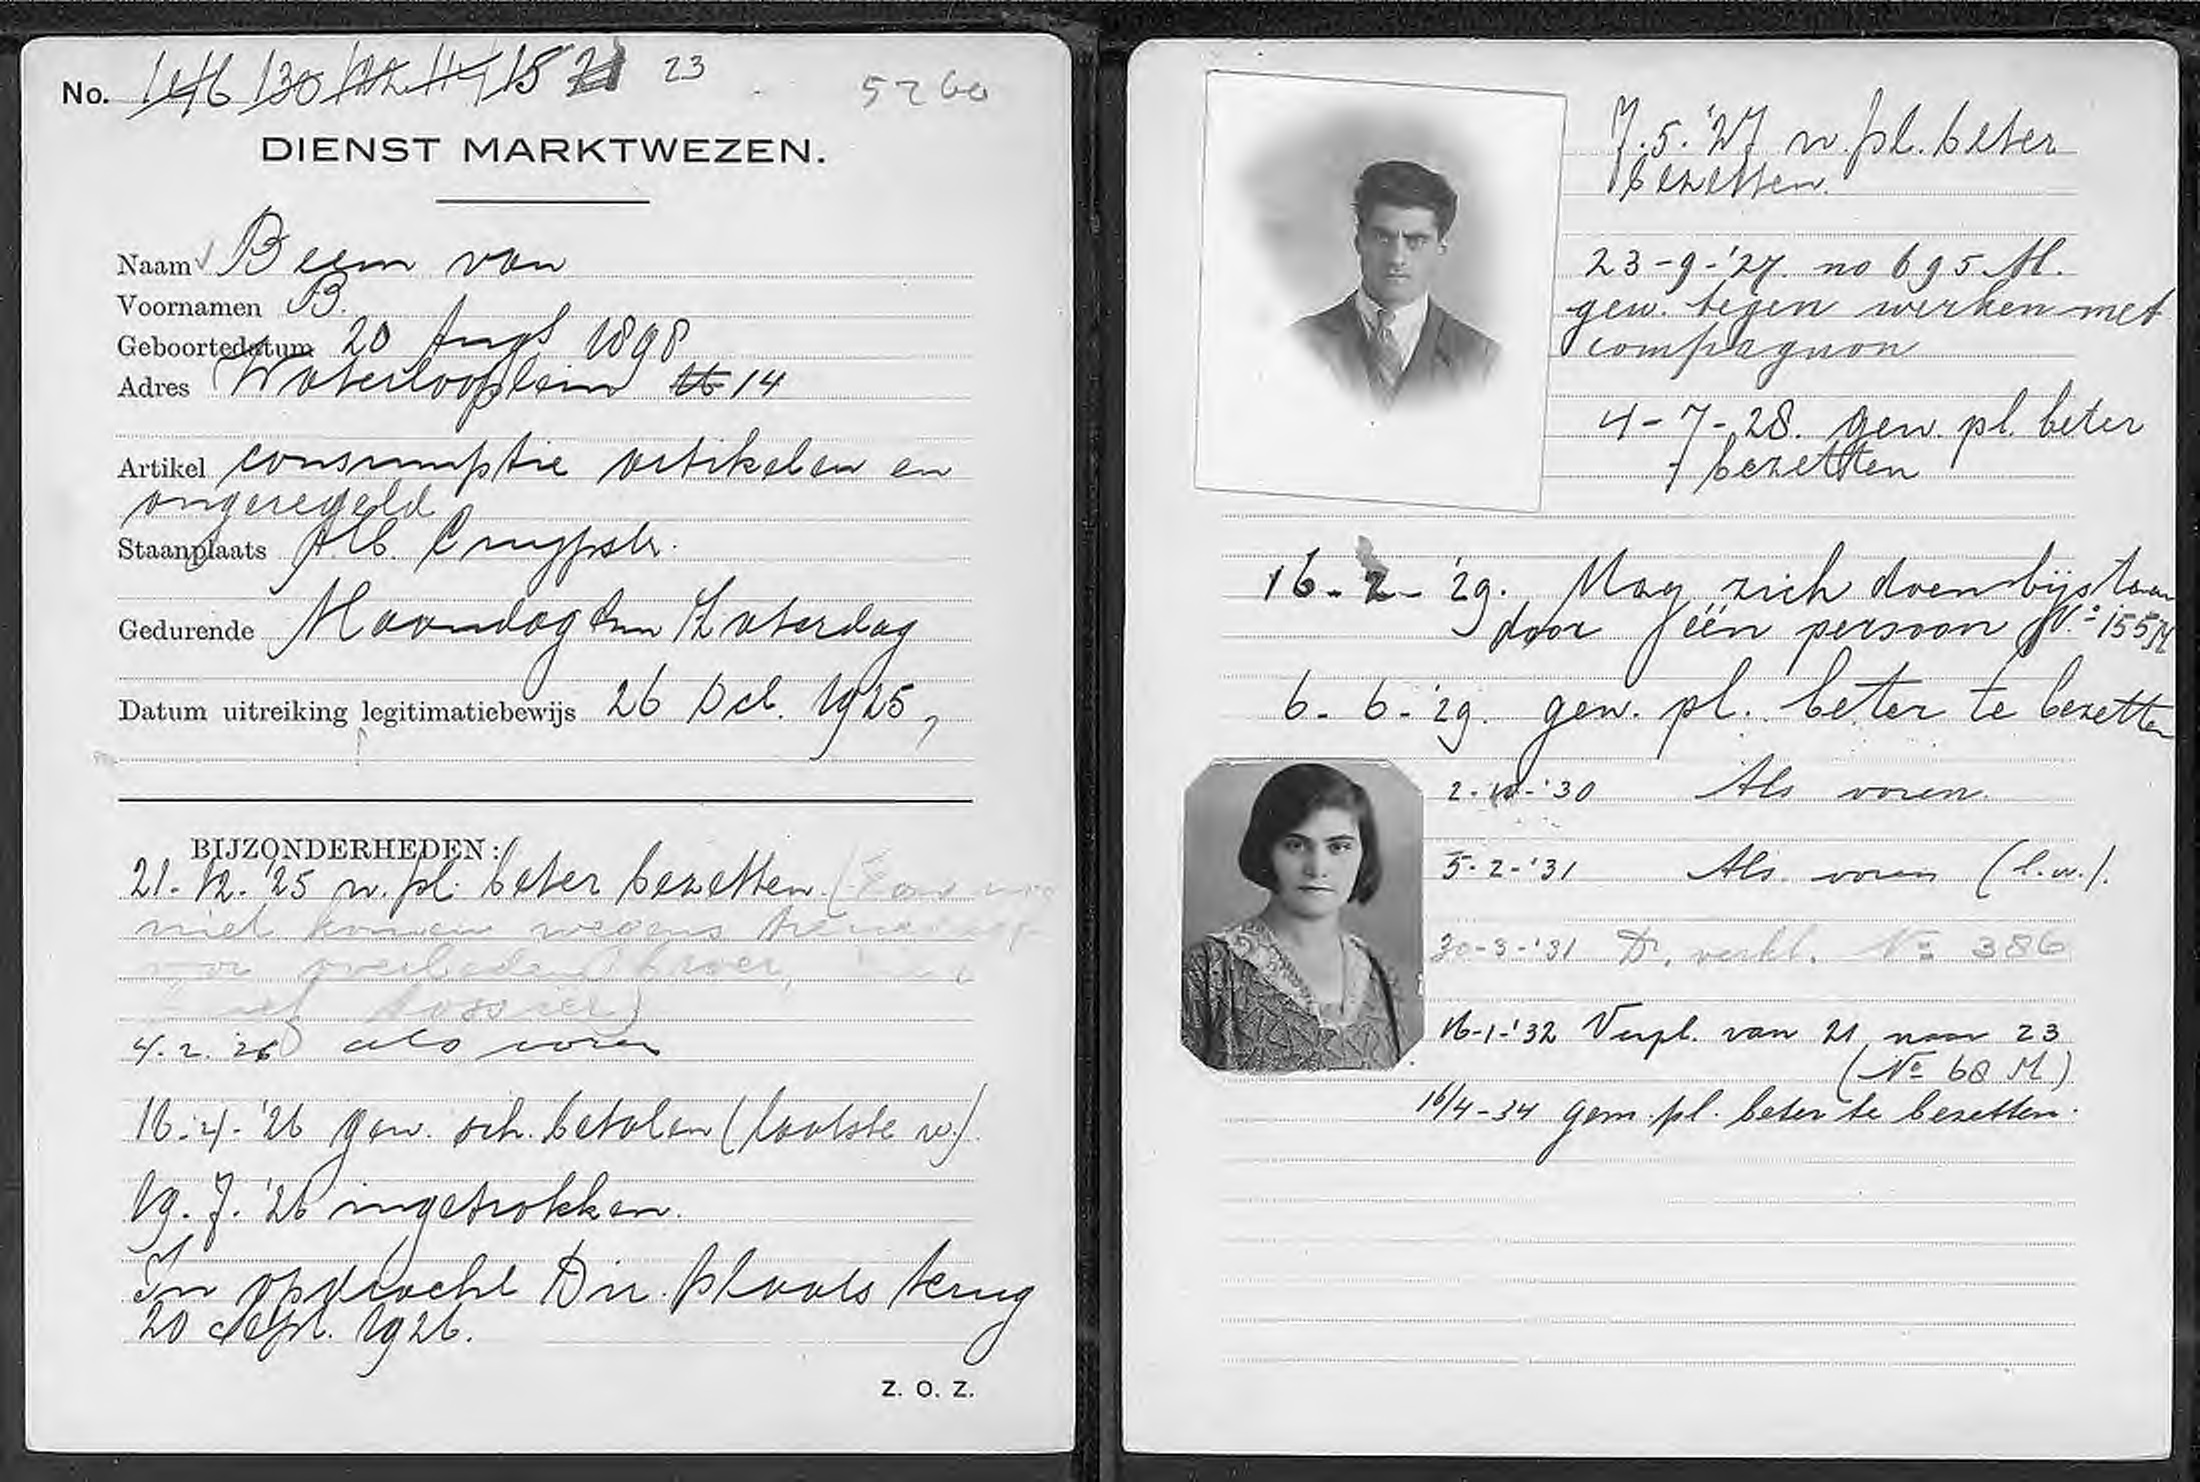 No. 146 130 122 117 15 21 23 5260
DIENST MARKTWEZEN.
Naam Beem van
Voornamen B.
Geboortedatum 20 Augs 1898
Adres Waterlooplein 14
Artikel consumptie artikelen en
ongeregeld
Staanplaats Alb. Cuypstr.
Gedurende Maandag t/m Zaterdag
Datum uitreiking legitimatiebewijs 26 Oct. 1925,
BIJZONDERHEDEN:
21.12.'25 w. pl. beter bezetten (
niet komen wegens
voor overleden broer,
dossier)
4.2.'26 als voren
16.4.'26 gew. sch. betalen (laatste w.).
19.7.'26 ingetrokken.
In opdracht Dir. plaats terug
20 Sept. 1926.
Z. O. Z.
7.5.'27 w. pl. beter
bezetten.
23-9-'27. no 695 M.
gew. tegen werken met
compagnon
4-7-28. gew. pl. beter
bezetten
16-2-'29. Mag zich doen bijstaan
door één persoon No 155M
6-6-'29. gew. pl. beter te bezetten
2-10-'30 Als voren.
5-2-'31 Als voren (l.w.).
30-3-'31 D. verkl. No 386
16-1-'32 Verpl. van 21 naar 23
(No 68 M)
16/4-34 gew. pl. beter te bezetten.